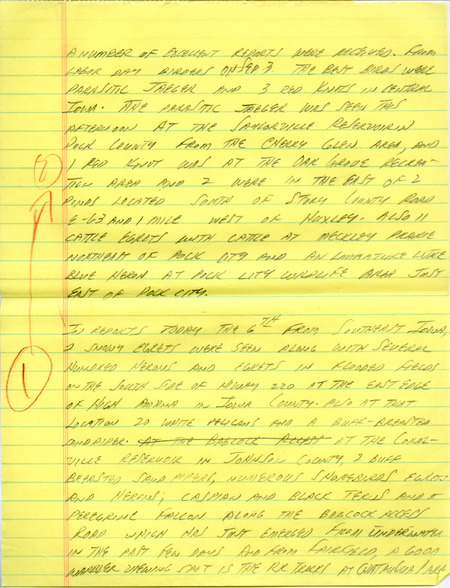 A NUMBER OF EXCELLENT REPORTS WERE RECEIVED. FROM
LABOR DAY BIRDERS ON SEP 3 THE BEST BIRDS WERE
PARASITIC JAEGER AND 3 RED KNOTS IN CENTRAL
IOWA. THE PARASITIC JAEGER WAS SEEN THIS
AFTERNOON AT THE SAYLORVILLE RESERVOIR IN
POLK COUNTY FROM THE CHERRY GLEN AREA, AND
1 RED KNOT WAS AT THE OAK GROVE RECREA-
TION AREA AND 2 WERE IN THE EAST OF 2
PONDS LOCATED SOUTH OF STORY COUNTY ROAD
E-63 AND 1 MILE WEST OF HUXLEY. ALSO 11
CATTLE EGRETS WITH CATTLE AT PRAIRIE
NORTHEAST OF POLK CITY AND AN IMMATURE LITTLE
BLUE HERON AT POLK CITY WILDLIFE AREA JUST
EAST OF POLK CITY.
2
1
IN REPORTS TODAY THE 6TH FROM SOUTHEAST IOWA,
2 SNOWY EGRETS WERE SEEN ALONG WITH SEVERAL
HUNDRED HERONS AND EGRETS IN FLOODED FIELDS
ON THE SOUTH SIDE OF HIWAY 220 AT THE EAST EDGE
OF HIGH AMANA IN IOWA COUNTY. ALSO AT THAT
LOCATION 20 WHITE PELICANS AND A BUFF-BREASTED
SANDPIPER. AT THE BABCOCK ACCESS AT THE CORAL-
VILLE RESERVOIR IN JOHNSON COUNTY, 2 BUFF
BREASTED SANDPIPERS, NUMEROUS SHOREBIRDS EGRETS
AND HERONS; CASPIAN AND BLACK TERNS AND A
PEREGRINE FALCON ALONG THE BABCOCK ACCESS
ROAD WHICH HAS JUST EMERGED FROM UNDERWATER
IN THE PAST FEW DAYS AND FROM FAIRFIELD, A GOOD
VIEWING SPOT IS THE RR TRACKS AT CHAUTAUQUA PARK